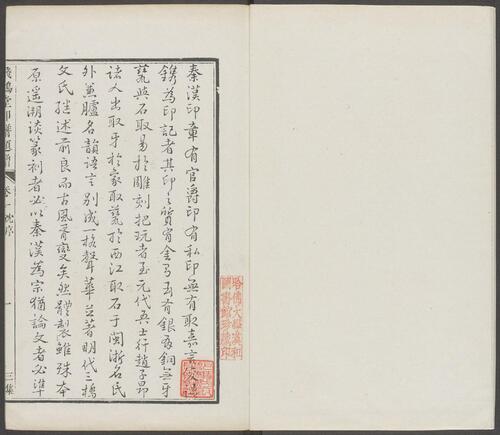 秦漢印章有官爵印有私印無有取嘉言
鐫為印記者其印之質有金有玉有銀有銅無牙
甆與石取易於雕刻把玩者至元代吾士行趙子昂
諸人出取牙於象取甆於西江取石于閩浙名氏
外兼臚名韻語言別成一格聲華並著明代三橋
文氏繼述前良而古風胥變矣然體製雖殊本
原遥溯談篆刻者必以秦漢為宗猶論文者必準
印譜
卷一 沈序
一
三集
哈佛大學漢和
圖書館珍藏印